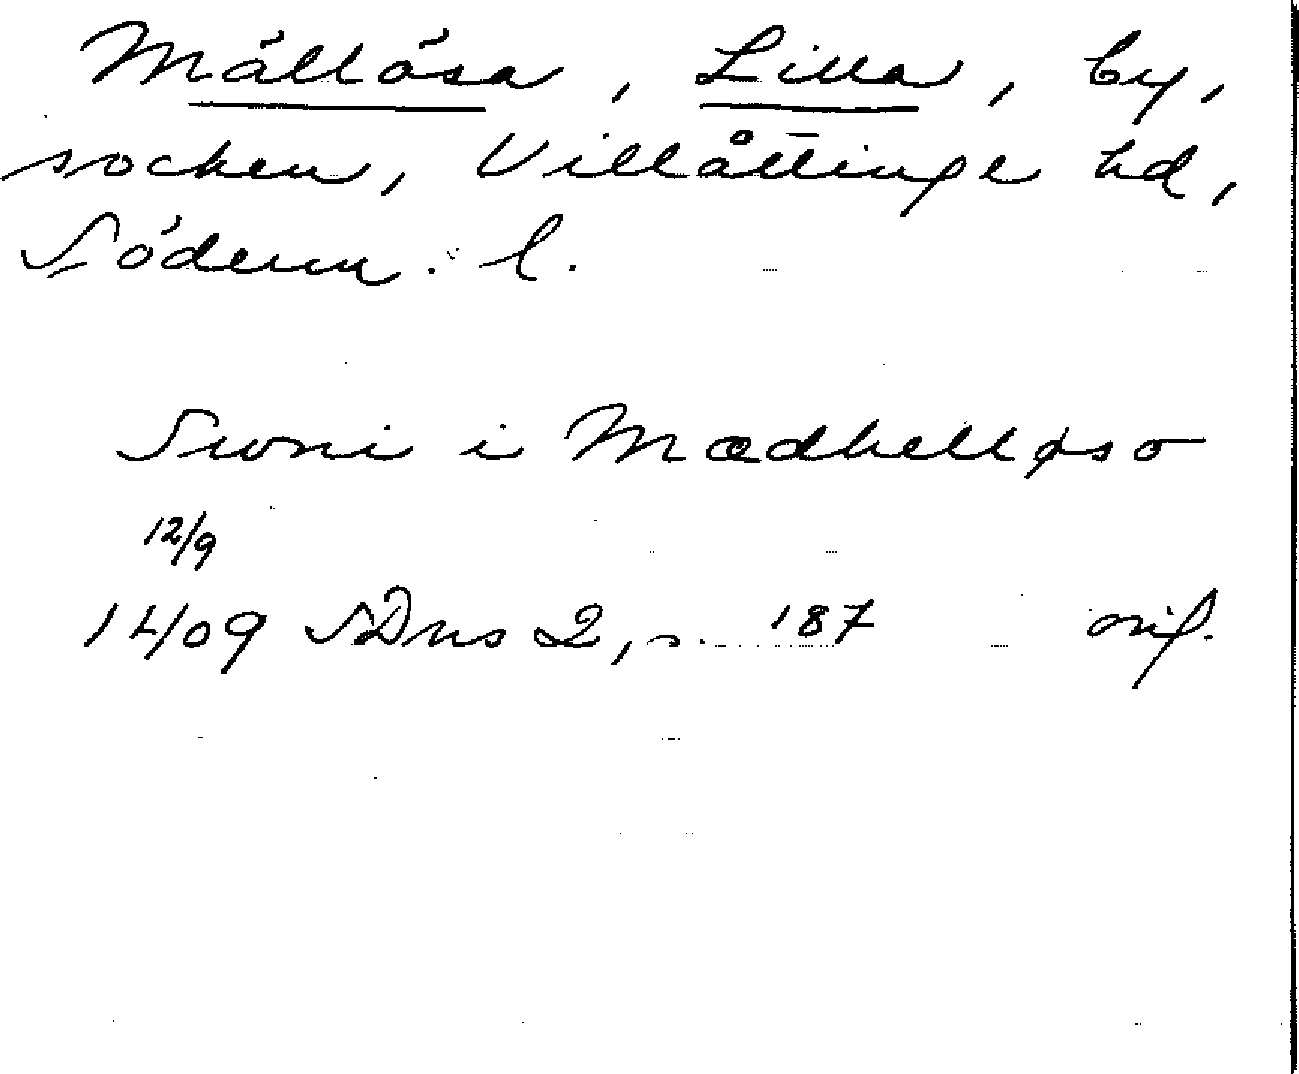 Mällösa, Lilla, by,
socken, Villåttinge hd,
Söderm. l.
Swni i Mædhelløso
12/9
1409 SDns 2, s. 187 orig.